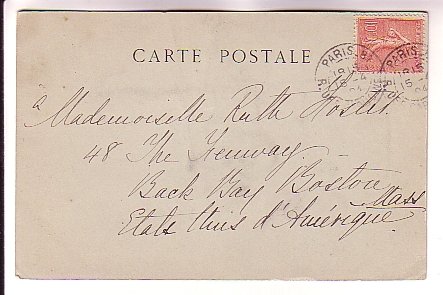 CARTE POSTALE
PARIS
à Mademoiselle Ruth
48 The Fenway.
Back Bay Boston
Mass
Etats Unis d'Amérique.